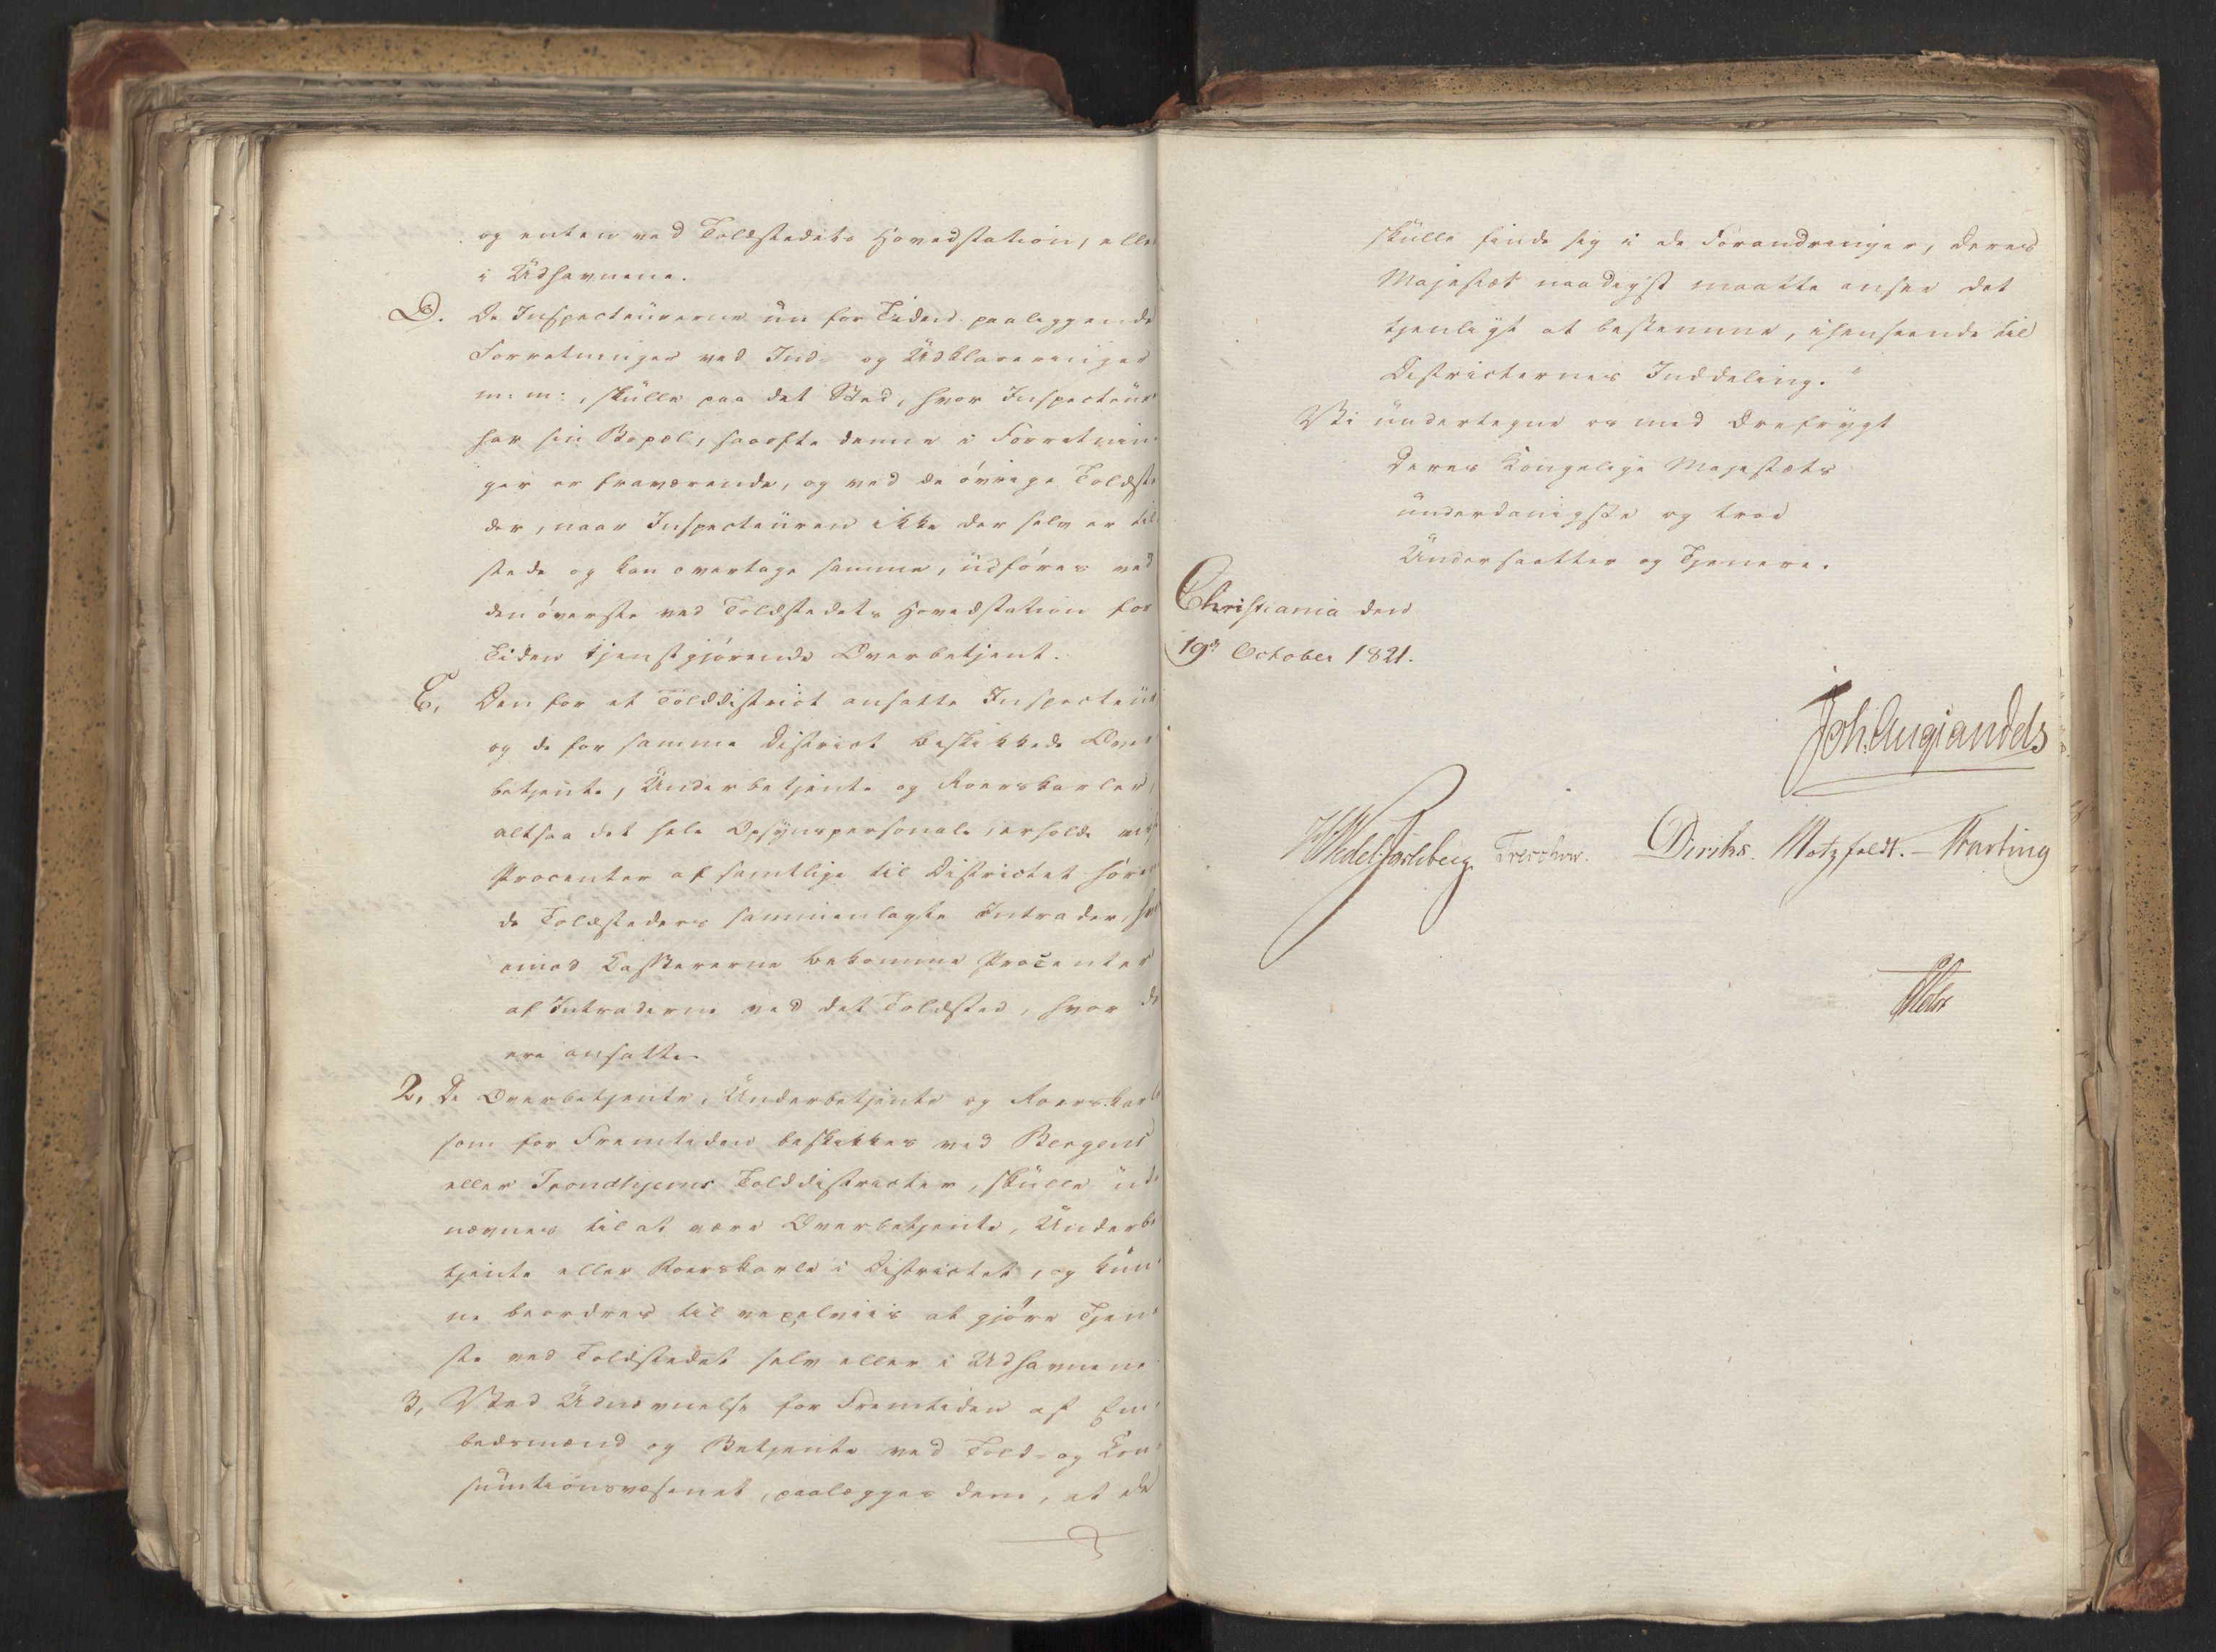 og enten ved Toldstedets Hovedstation, eller
i Udhavnene.
D. De Inspecteurerne nu for Tiden paaliggende
Forretninger ved Ind- og Udklareringer
m: m:, skulle paa det Sted, hvor Inspecteur
har sin Bopæl, saaofte denne i Forretnin-
ger er fraværende, og ved de øvrige Toldste-
der, naar Inspecteuren ikke der selv er til
stede og kan overtage samme, udføres ved
den øverste ved Toldstedets Hovedstation for
Tiden tjenstgjørende Overbetjent.
E, Den for et Tolddistrict ansatte Inspecteur
og de for samme District beskikkede Over-
betjente, Underbetjente og Roerskarler,
altsaa det hele Opsynspersonale, erholde visse
Procenter af samtlige til Districtet høren-
de Toldsteders sammenlagte Intrader, hvor-
imod Kassererne bekomme Procenter
af Intraderne ved det Toldsted, hvor de
ere ansatte.
2, De Overbetjente, Underbetjente og Roerskarle
som for Fremtiden beskikkes ved Bergens
eller Trondhjems Tolddistricter, skulle ud-
nævnes til at være Overbetjente, Underbe-
tjente eller Roerskarle i Districtet, og kun-
ne beordres til vexelviis at gjøre Tjene-
ste ved Toldstedet selv eller i Udhavnene
3, Ved Udnævnelse for Fremtiden af Em-
bedsmænd og Betjente ved Told- og Con-
sumtionsvæsenet, paalægges dem, at de
skulle finde sig i de Forandringer, Deres
Majestæt naadigst maatte ansee det
tjenligt at bestemme, ihenseende til
Districternes Inddeling."
Vi undertegne os med Ærefrygt
Deres Kongelige Majestæts
underdanigste og troe
Undersaatter og Tjenere.
Christiania den
19de October 1821.
Joh. Aug. Sandels
HWedel Jarlsberg Treschow. Diriks. Motzfeldt. - Krarting